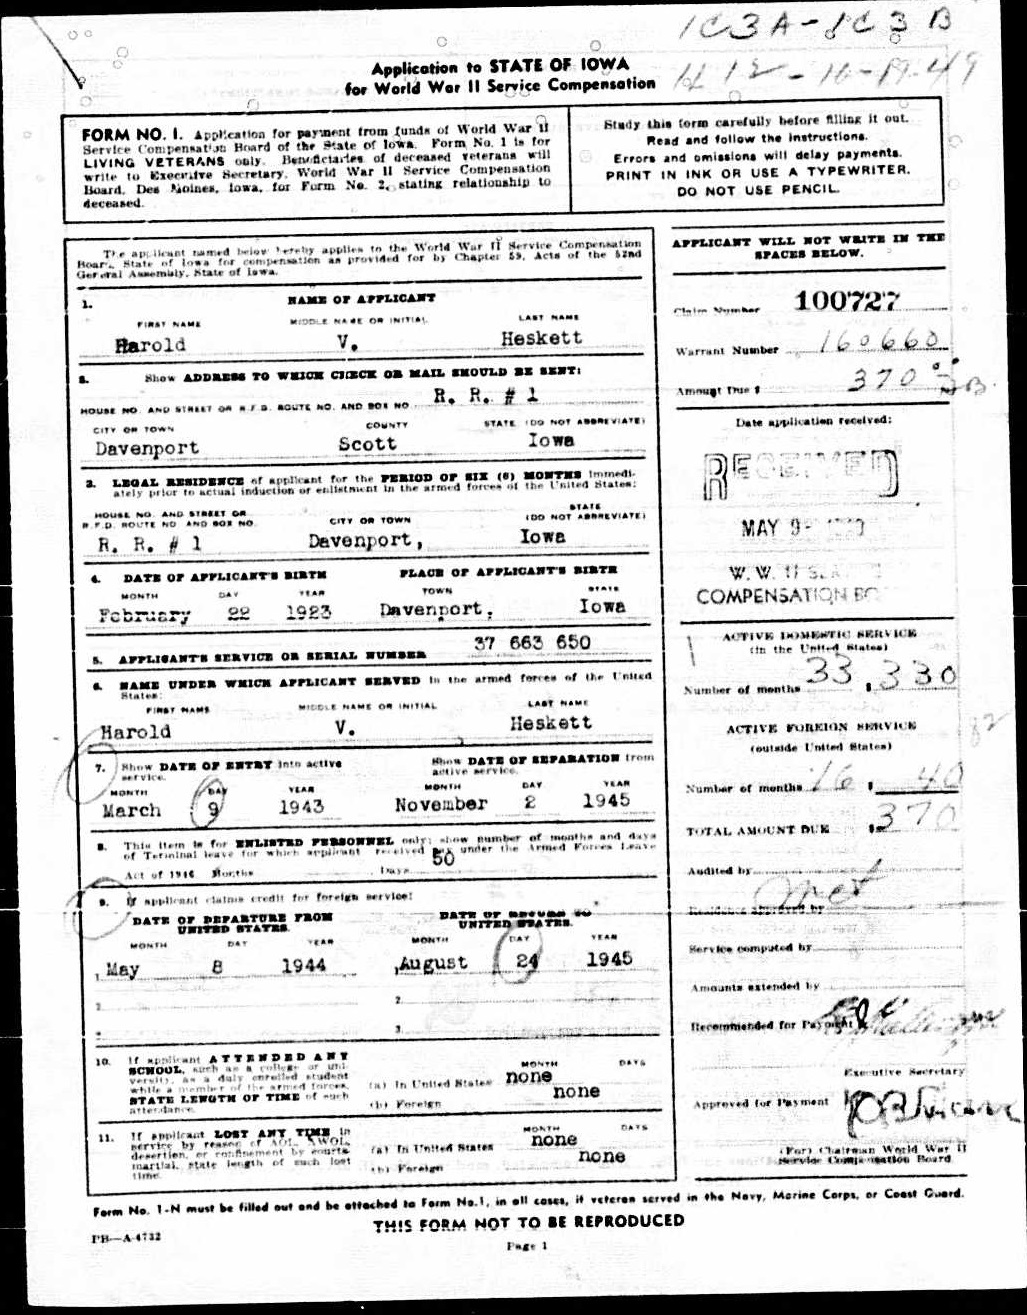 1C3A-1C3B
Application to STATE OF IOWA
for World War II Service Compensation
12-16-19-49
FORM NO. 1. Application for payment from funds of World War II
Service Compensation Board of the State of Iowa. Form No. 1 is for
LIVING VETERANS only. Beneficiaries of deceased veterans will
write to Executive Secretary, World War II Service Compensation
Board, Des Moines, Iowa, for Form No. 2, stating relationship to
deceased.
Study this form carefully before filling it out.
Read and follow the instructions.
Errors and omissions will delay payments.
PRINT IN INK OR USE A TYPEWRITER.
DO NOT USE PENCIL.
The applicant named below hereby applies to the World War II Service Compensation
Board, State of Iowa for compensation as provided for by Chapter 59, Acts of the 52nd
General Assembly, State of Iowa.
1. NAME OF APPLICANT
FIRST NAME MIDDLE NAME OR INITIAL LAST NAME
Harold V. Heskett
2. Show ADDRESS TO WHICH CHECK OR MAIL SHOULD BE SENT:
R. R. # 1
HOUSE NO. AND STREET OR R.F.D. ROUTE NO. AND BOX NO.
CITY OR TOWN COUNTY STATE (DO NOT ABBREVIATE)
Davenport Scott Iowa
3. LEGAL RESIDENCE of applicant for the PERIOD OF SIX (6) MONTHS immedi-
ately prior to actual induction or enlistment in the armed forces of the United States:
HOUSE NO. AND STREET OR
R.F.D. ROUTE NO. AND BOX NO. CITY OR TOWN STATE (DO NOT ABBREVIATE)
R. R. # 1 Davenport, Iowa
4. DATE OF APPLICANT'S BIRTH PLACE OF APPLICANT'S BIRTH
MONTH DAY YEAR TOWN STATE
February 22 1923 Davenport, Iowa
37 663 650
5. APPLICANT'S SERVICE OR SERIAL NUMBER
6. NAME UNDER WHICH APPLICANT SERVED in the armed forces of the United
States:
FIRST NAME MIDDLE NAME OR INITIAL LAST NAME
Harold V. Heskett
7. Show DATE OF ENTRY into active
service.
Show DATE OF SEPARATION from
active service.
MONTH DAY YEAR MONTH DAY YEAR
March 9 1943 November 2 1945
8. This item is for ENLISTED PERSONNEL only; show number of months and days
of Terminal leave for which applicant received pay under the Armed Forces Leave
50
Act of 1946. Months Days
9. If applicant claims credit for foreign service:
DATE OF DEPARTURE FROM
UNITED STATES.
DATE OF RETURN TO
UNITED STATES.
MONTH DAY YEAR MONTH DAY YEAR
1. May 8 1944 August 24 1945
2. 2.
3.
10. If applicant ATTENDED ANY
SCHOOL, such as a college or uni-
versity, as a duly enrolled student
while a member of the armed forces,
STATE LENGTH OF TIME of such
attendance.
MONTH DAYS
(a) In United States none
(b) Foreign none
11. If applicant LOST ANY TIME in
service by reason of AOL, AWOL,
desertion, or confinement by courts-
martial, state length of such lost
time.
MONTH DAYS
(a) In United States none
(b) Foreign none
APPLICANT WILL NOT WRITE IN THE
SPACES BELOW.
Claim Number 100727
Warrant Number 160660
Amount Due $ 370
Date application received:
RECEIVED
MAY 9-
W. W. II
COMPENSATION
ACTIVE DOMESTIC SERVICE
(in the United States)
Number of months 33 $ 330
ACTIVE FOREIGN SERVICE
(outside United States)
Number of months 16 $ 40
TOTAL AMOUNT DUE $ 370
Audited by
Residence approved by
Service computed by
Amounts extended by
Recommended for Payment
Executive Secretary
Approved for Payment
(For) Chairman World War II
Service Compensation Board.
Form No. 1-N must be filled out and be attached to Form No. 1, in all cases, if veteran served in the Navy, Marine Corps, or Coast Guard.
THIS FORM NOT TO BE REPRODUCED
PB—A-4732
Page 1